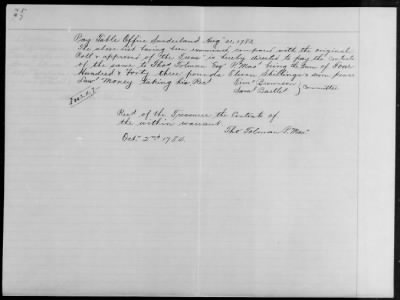 Pay Table Office Sunderland Aug 31, 1782
The above roll having been examined compared with the original
Roll & approved of the Treasr is hereby directed to pay the contents
of the same to Thos Tolman Esqr P. Masr being the Sum of Four
Hundred & Forty three pounds Eleven Shillings &
Law Money taking his Rect
Timo Brownson
Saml Bartlet
Committee
Recd of the Treasurer the Contents of
the within warrant.
Tho Tolman P. Masr
Octr 2nd 1782.